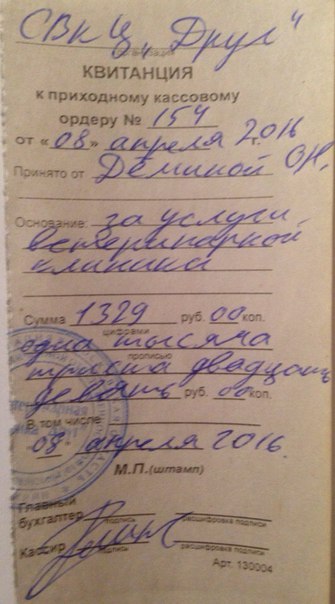 СВКЦ „Друг"
организация
КВИТАНЦИЯ
к приходному кассовому
ордеру № 154
от «08» апреля 2016 г.
Принято от Деминой О.Н.
Основание: за услуги
ветеринарной
клиники
Сумма 1329 руб. 00 коп.
цифрами
одна тысяча
прописью
триста двадцать
девять руб. 00 коп.
В том числе
"08" апреля 2016.
М.П.(штамп)
Главный
бухгалтер
подпись расшифровка подписи
Кассир
подпись расшифровка подписи
Арт. 130004